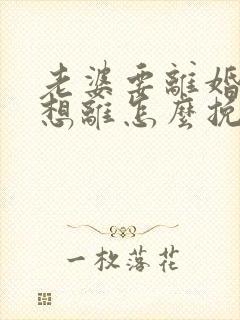 老婆要離婚
想離怎麼挽
一枚落花